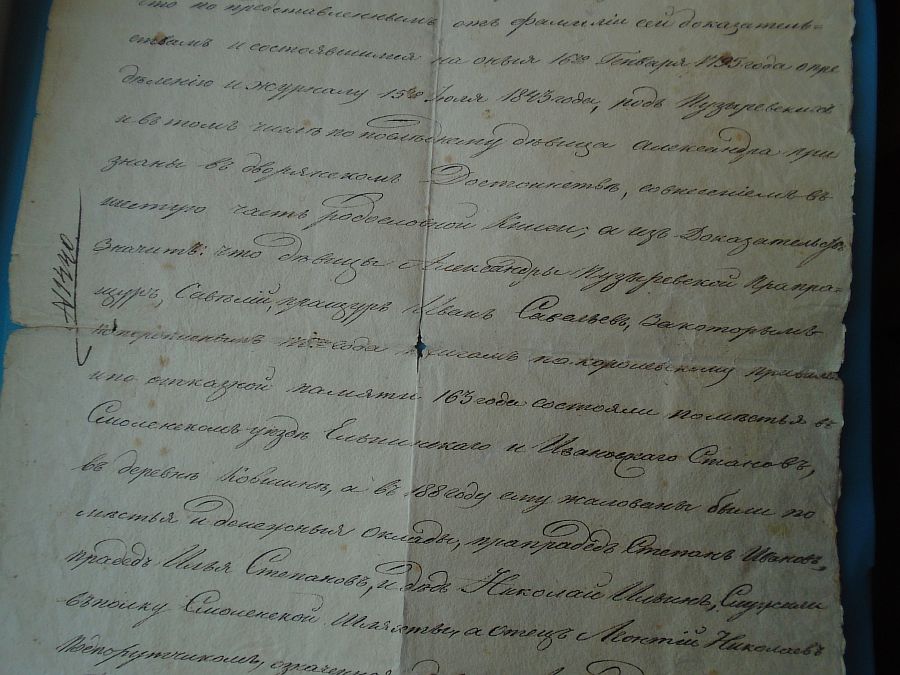 сто по представленнымъ отъ фамиліи сей доказатель=
ствамъ и состоявшимся на оныя 16го Генваря 1795 года опре
дѣленію и журналу 15го Іюля 1843 года, родъ Пузыревскихъ
и въ томъ числѣ по послѣднему дѣвица Александра при
знаны въ дворянскомъ Достоинствѣ, со внесеніемъ въ
шестую часть родословной Книги; а изъ Доказательствъ
Значитъ: что дѣвицы Александры Пузыревской прапра=
щуръ, Савелій, пращуръ Иванъ Савельевъ, за которымъ
года книгамъ по королевскому
и по отказной памяти 163 года состояли помѣстья въ
Смоленскомъ уѣздѣ Ельнинскаго и Ивановскаго Становъ,
въ деревнѣ а въ 188 году ему жалованы были по
мѣстья и денежныя оклады, прапрадѣдъ Степанъ Ивановъ,
прадѣдъ Илья Степановъ, и дѣдъ Николай Ильинъ, Служили
въ полку Смоленской Шляхты, а отецъ Леонтій Николаевъ
Подпорутчикомъ, означенная
№ 1440